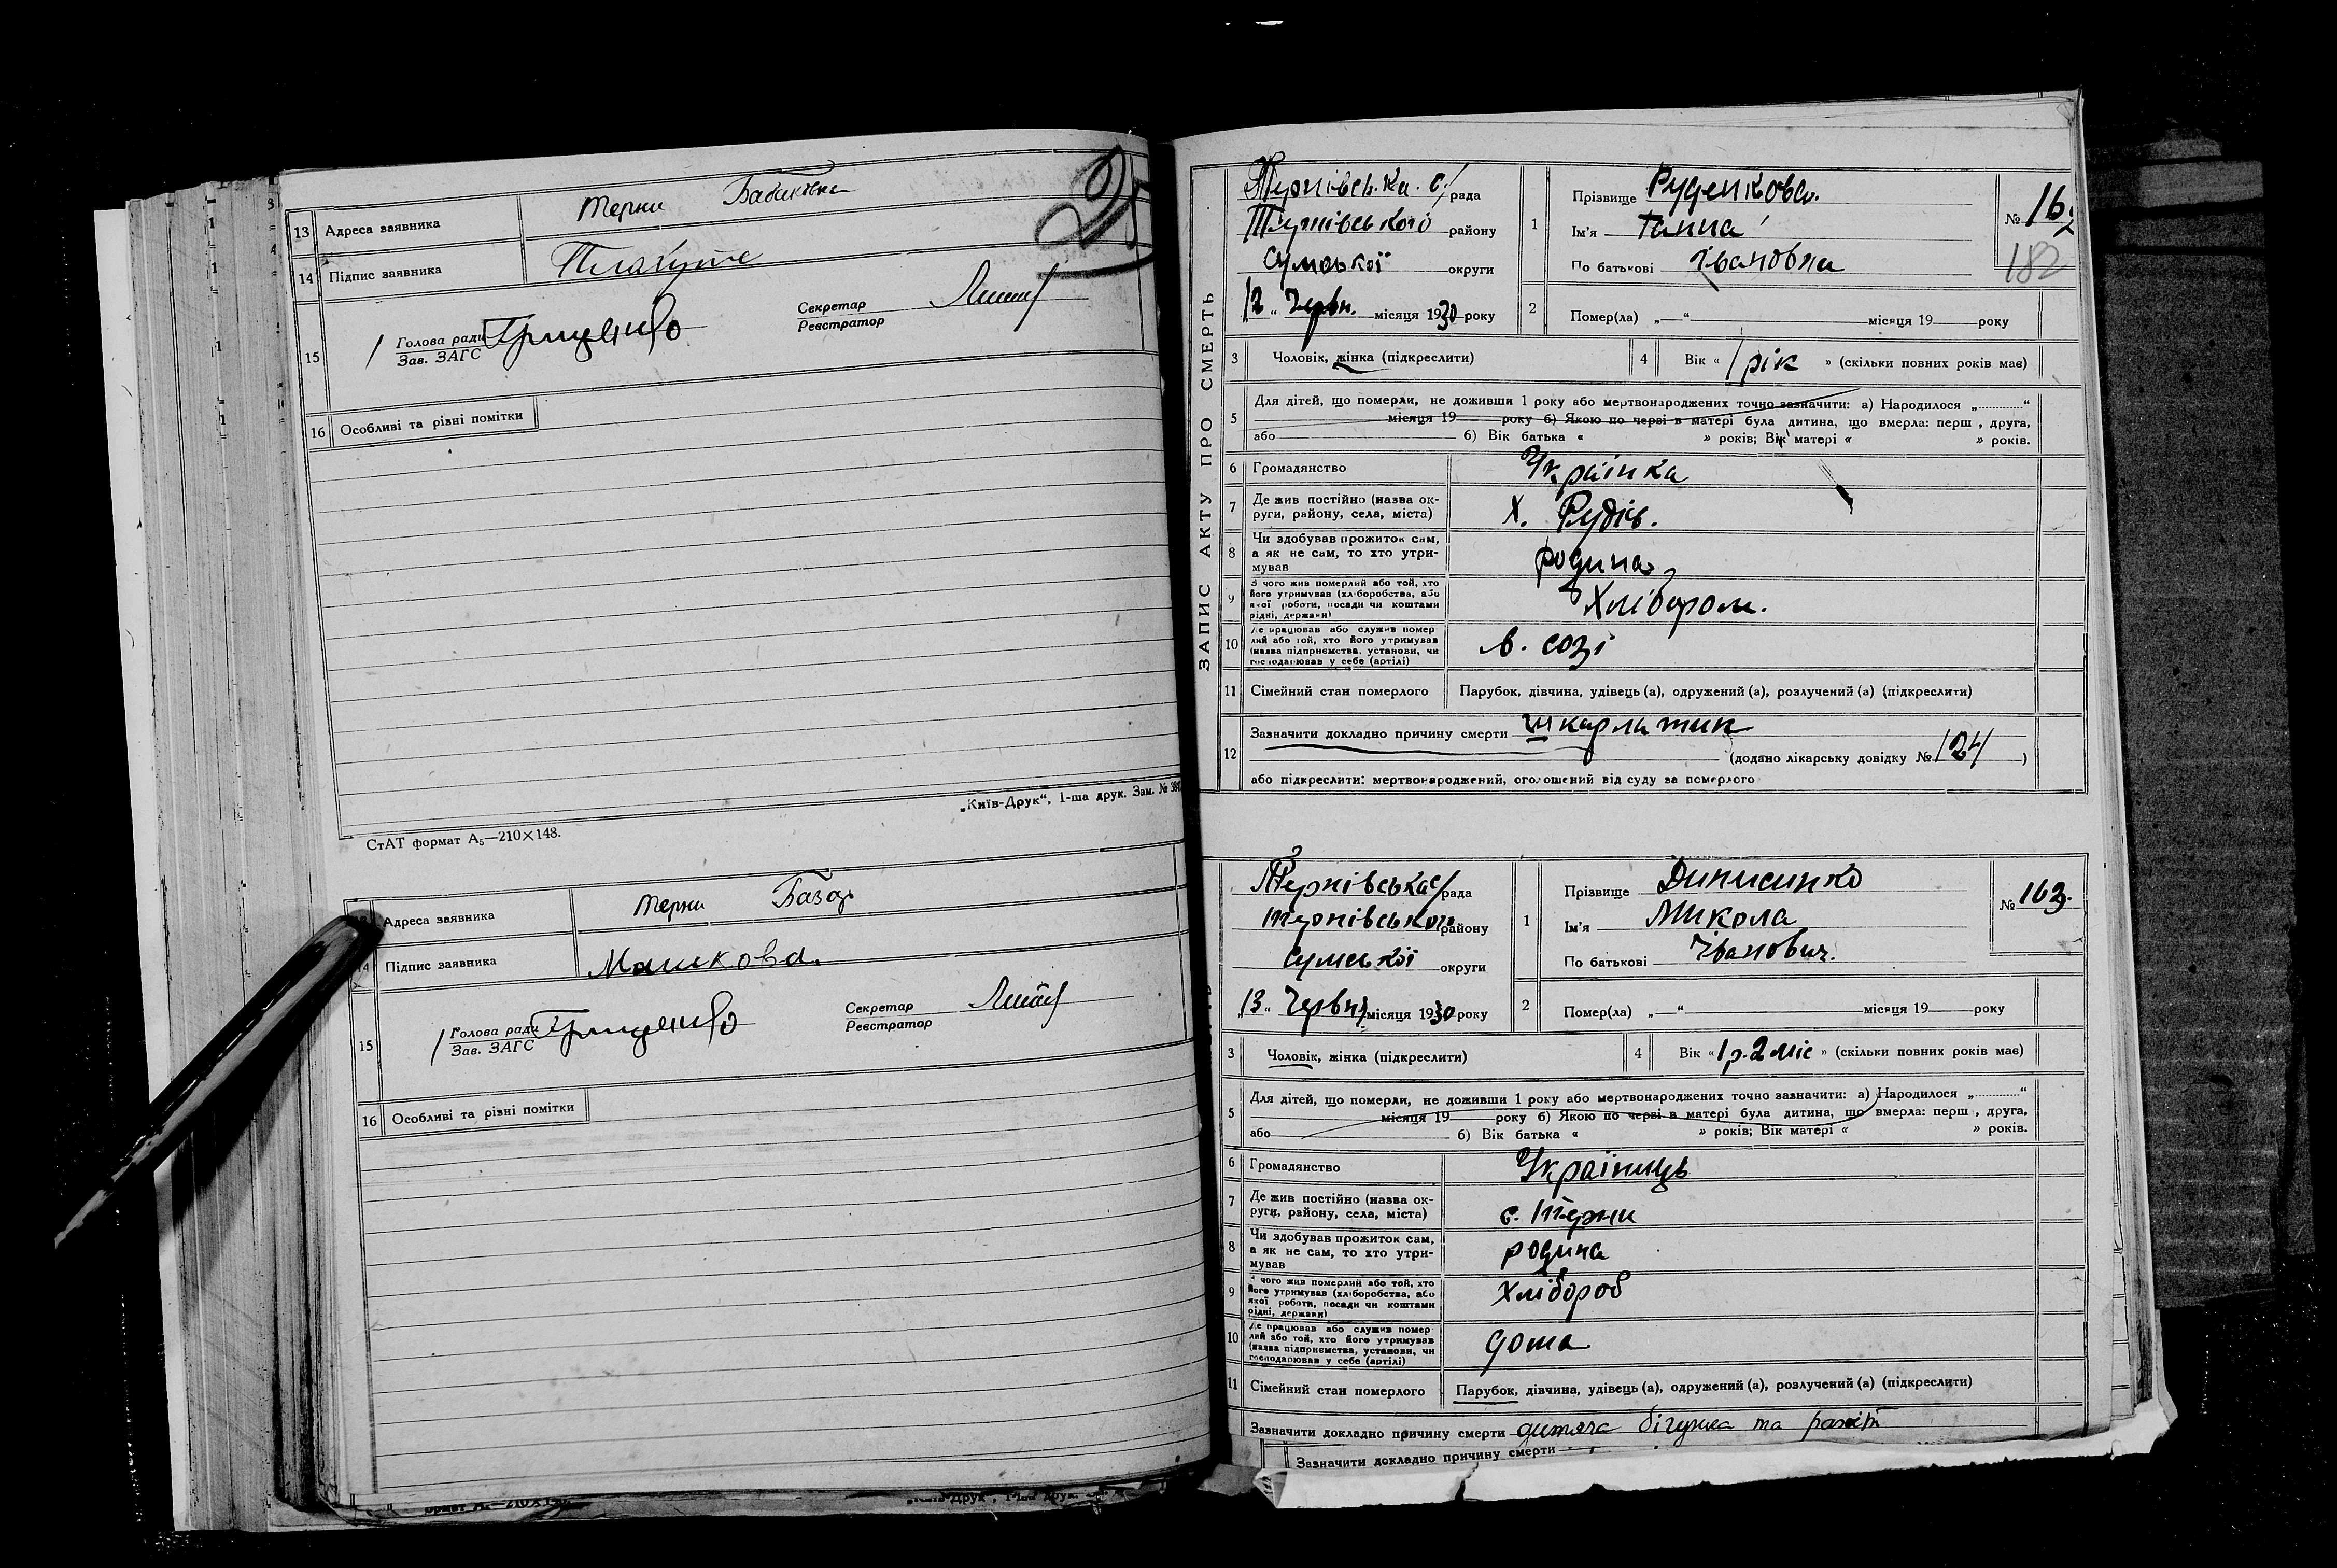 13 Адреса заявника Терни Бабаківка
14 Підпис заявника
15 Голова ради Грищенко Секретар
Зав. ЗАГС Реєстратор
16 Особливі та різні помітки
„Київ-Друк“, 1-ша друк. Зам. №
СтАТ формат А5—210×148.
Адреса заявника Терни Базар
14 Підпис заявника Машкова.
15 Голова ради Грищенко Секретар
Зав. ЗАГС Реєстратор
16 Особливі та різні помітки
ЗАПИС АКТУ ПРО СМЕРТЬ
Тернівська с/рада
Тернівського району
Сумської округи
„12„ Червн. місяця 1930 року
1 Прізвище Руденкова.
Ім'я Ганна
По батькові Івановна
№ 16
182
2 Помер(ла) „—“ місяця 19 року
3 Чоловік, жінка (підкреслити)
4 Вік «1 рік» (скільки повних років має)
5 Для дітей, що померли, не доживши 1 року або мертвонароджених точно зазначити: а) Народилося „............“
місяця 19 року б) Якою по черзі в матері була дитина, що вмерла: перш , друга,
або б) Вік батька « » років; Вік матері « » років.
6 Громадянство Українка
7 Де жив постійно (назва ок-
руги, району, села, міста) х. Рудів.
8 Чи здобував прожиток сам,
а як не сам, то хто утри-
мував родина
9 З чого жив померлий або той, хто
його утримував (хліборобства, або
якої роботи, посади чи коштами
рідні, держави) Хлібороом.
10 Де працював або служив помер
лий або той, хто його утримував
(назва підприємства, установи, чи
господарював у себе (артілі) в. созі
11 Сімейний стан померлого Парубок, дівчина, удівець (а), одружений (а), розлучений (а) (підкреслити)
12 Зазначити докладно причину смерти шкарлатин
(додано лікарську довідку № 124)
або підкреслити: мертвонароджений, оголошений від суду за померлого
Тернівська с/рада
Тернівського району
Сумської округи
„13„ Червня місяця 1930 року
1 Прізвище Динисинко
Ім'я Микола
По батькові Іванович.
№ 163.
2 Помер(ла) „—“ місяця 19 року
3 Чоловік, жінка (підкреслити)
4 Вік «1 р. 2 міс» (скільки повних років має)
5 Для дітей, що померли, не доживши 1 року або мертвонароджених точно зазначити: а) Народилося „............“
місяця 19 року б) Якою по черзі в матері була дитина, що вмерла: перш , друга,
або б) Вік батька « » років; Вік матері « » років.
6 Громадянство Українець
7 Де жив постійно (назва ок-
руги, району, села, міста) с. Терни
8 Чи здобував прожиток сам,
а як не сам, то хто утри-
мував родина
9 чого жив померлий або той, хто
його утримував (хліборобства, або
якої роботи, посади чи коштами
рідні, держави) Хлібороб
10 Де працював або служив помер
лий або той, хто його утримував
(назва підприємства, установи, чи
господарював у себе (артілі) дома
11 Сімейний стан померлого Парубок, дівчина, удівець (а), одружений (а), розлучений (а) (підкреслити)
Зазначити докладно причину смерти дитяча бігунка та рахіт
Зазначити докладно причину смерти